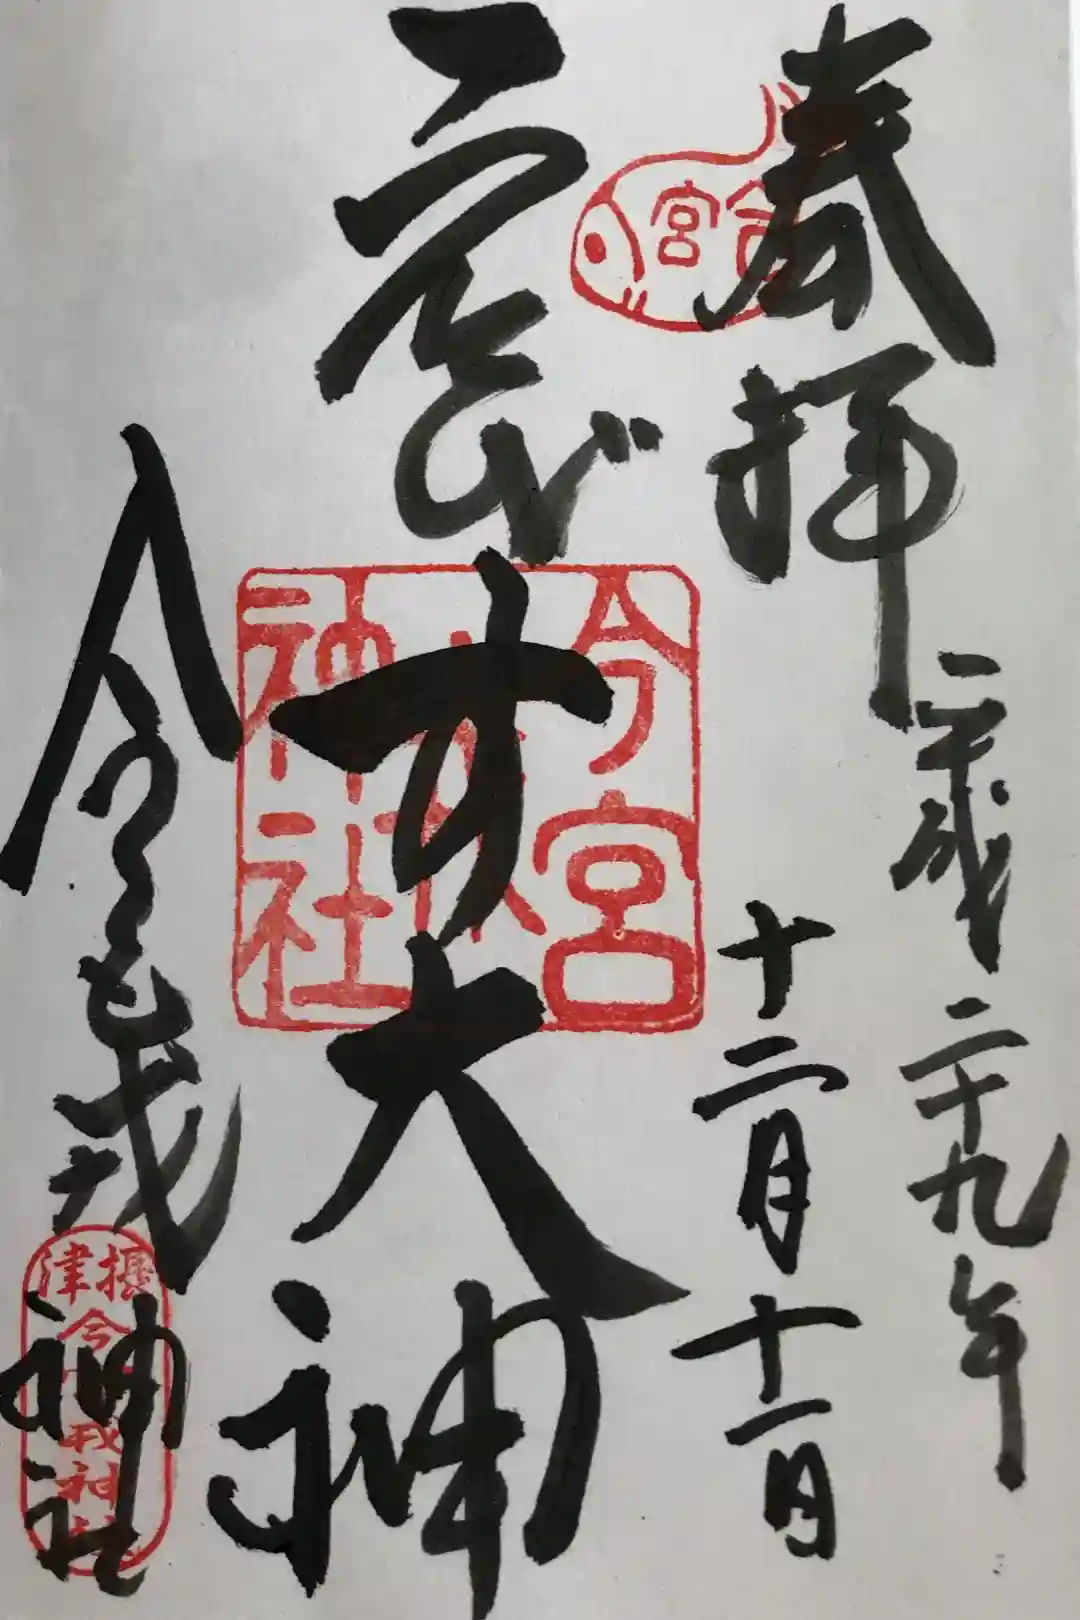 奉拝
平成二十九年
十二月十一日
ゑびす大神
今宮戎神社
今宮
今宮戎神社
摂津
今宮戎神社